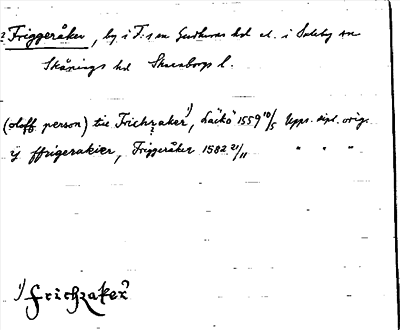 ? Friggeråker, by i F:s sn Gudhems hd el. i Saleby sn
Skånings hd Skaraborgs l.
(oloff. person) tic Frichzaker¹⁾, Läckö 1559 10/5 Upps. dipl. orig.
ij ffrigerakier, Friggeråker 1582 21/11 " " "
¹⁾ frichzaker?